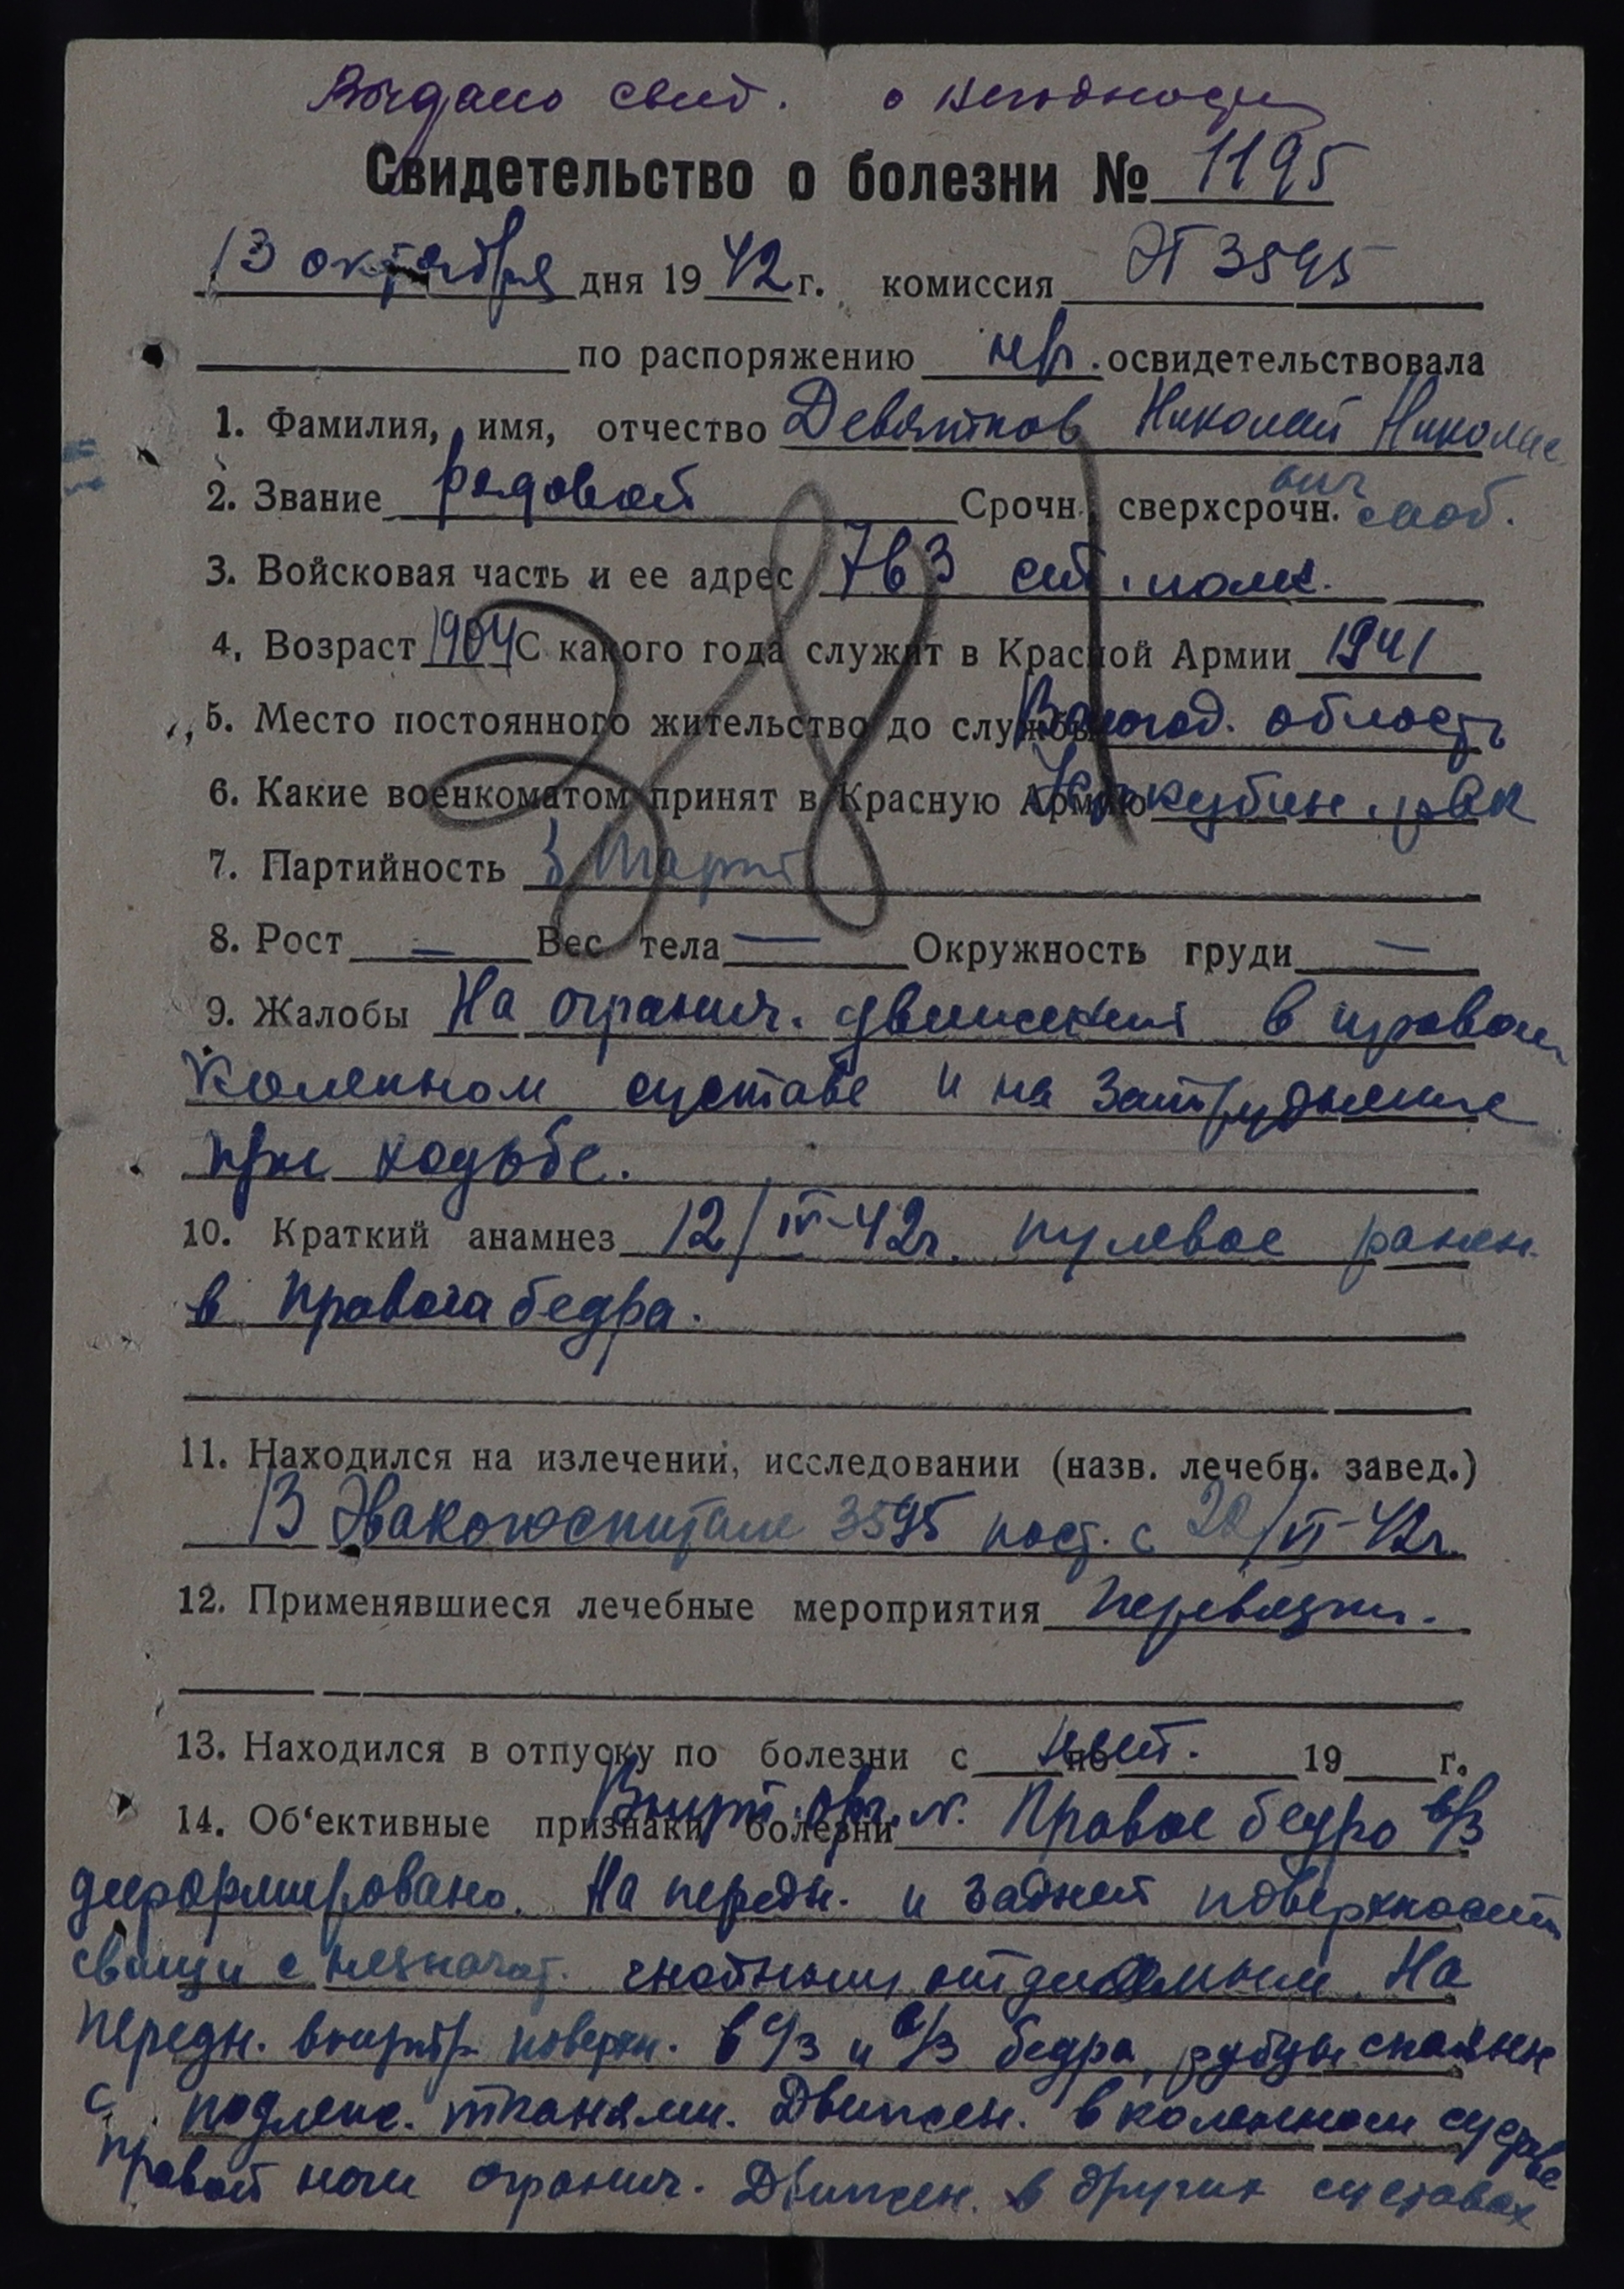 Выдано свид. о негодности
Свидетельство о болезни № 1195
13 октября дня 1942 г. комиссия ЭГ 3595
по распоряжению нач. освидетельствовала
1. Фамилия, имя, отчество Девятков Николай Николае
вич
2. Звание рядовой Срочн. сверхсрочн. моб.
3. Войсковая часть и ее адрес 763 ст. полк.
4. Возраст 1904 С какого года служит в Красной Армии 1941
5. Место постоянного жительство до службы Волгод. область
6. Какие военкоматом принят в Красную Армию Усть кубин. рвк
7. Партийность б/парт
8. Рост — Вес тела — Окружность груди —
381
9. Жалобы На огранич. движения в правом
коленном суставе и на затруднение
при ходьбе.
10. Краткий анамнез 12/IV-42г. пулевое ранен.
в правого бедра.
11. Находился на излечении, исследовании (назв. лечебн. завед.)
В Эвакогоспитале 3595 пост. с 22/VI-42г.
12. Применявшиеся лечебные мероприятия перевязки.
13. Находился в отпуску по болезни с нет. по 19 г.
14. Об'ективные признаки болезни Внутр. орг. N. Правое бедро в/3
диформировано. На передн. и задней поверхности
свищи с незначит. гнойным отделяемым. На
передн. внутр. поверхн. в с/3 и в/3 бедра, рубцы спаяны
с подлеж. тканями. Движен. в коленном суставе
правой ноги огранич. Движен. в других суставах